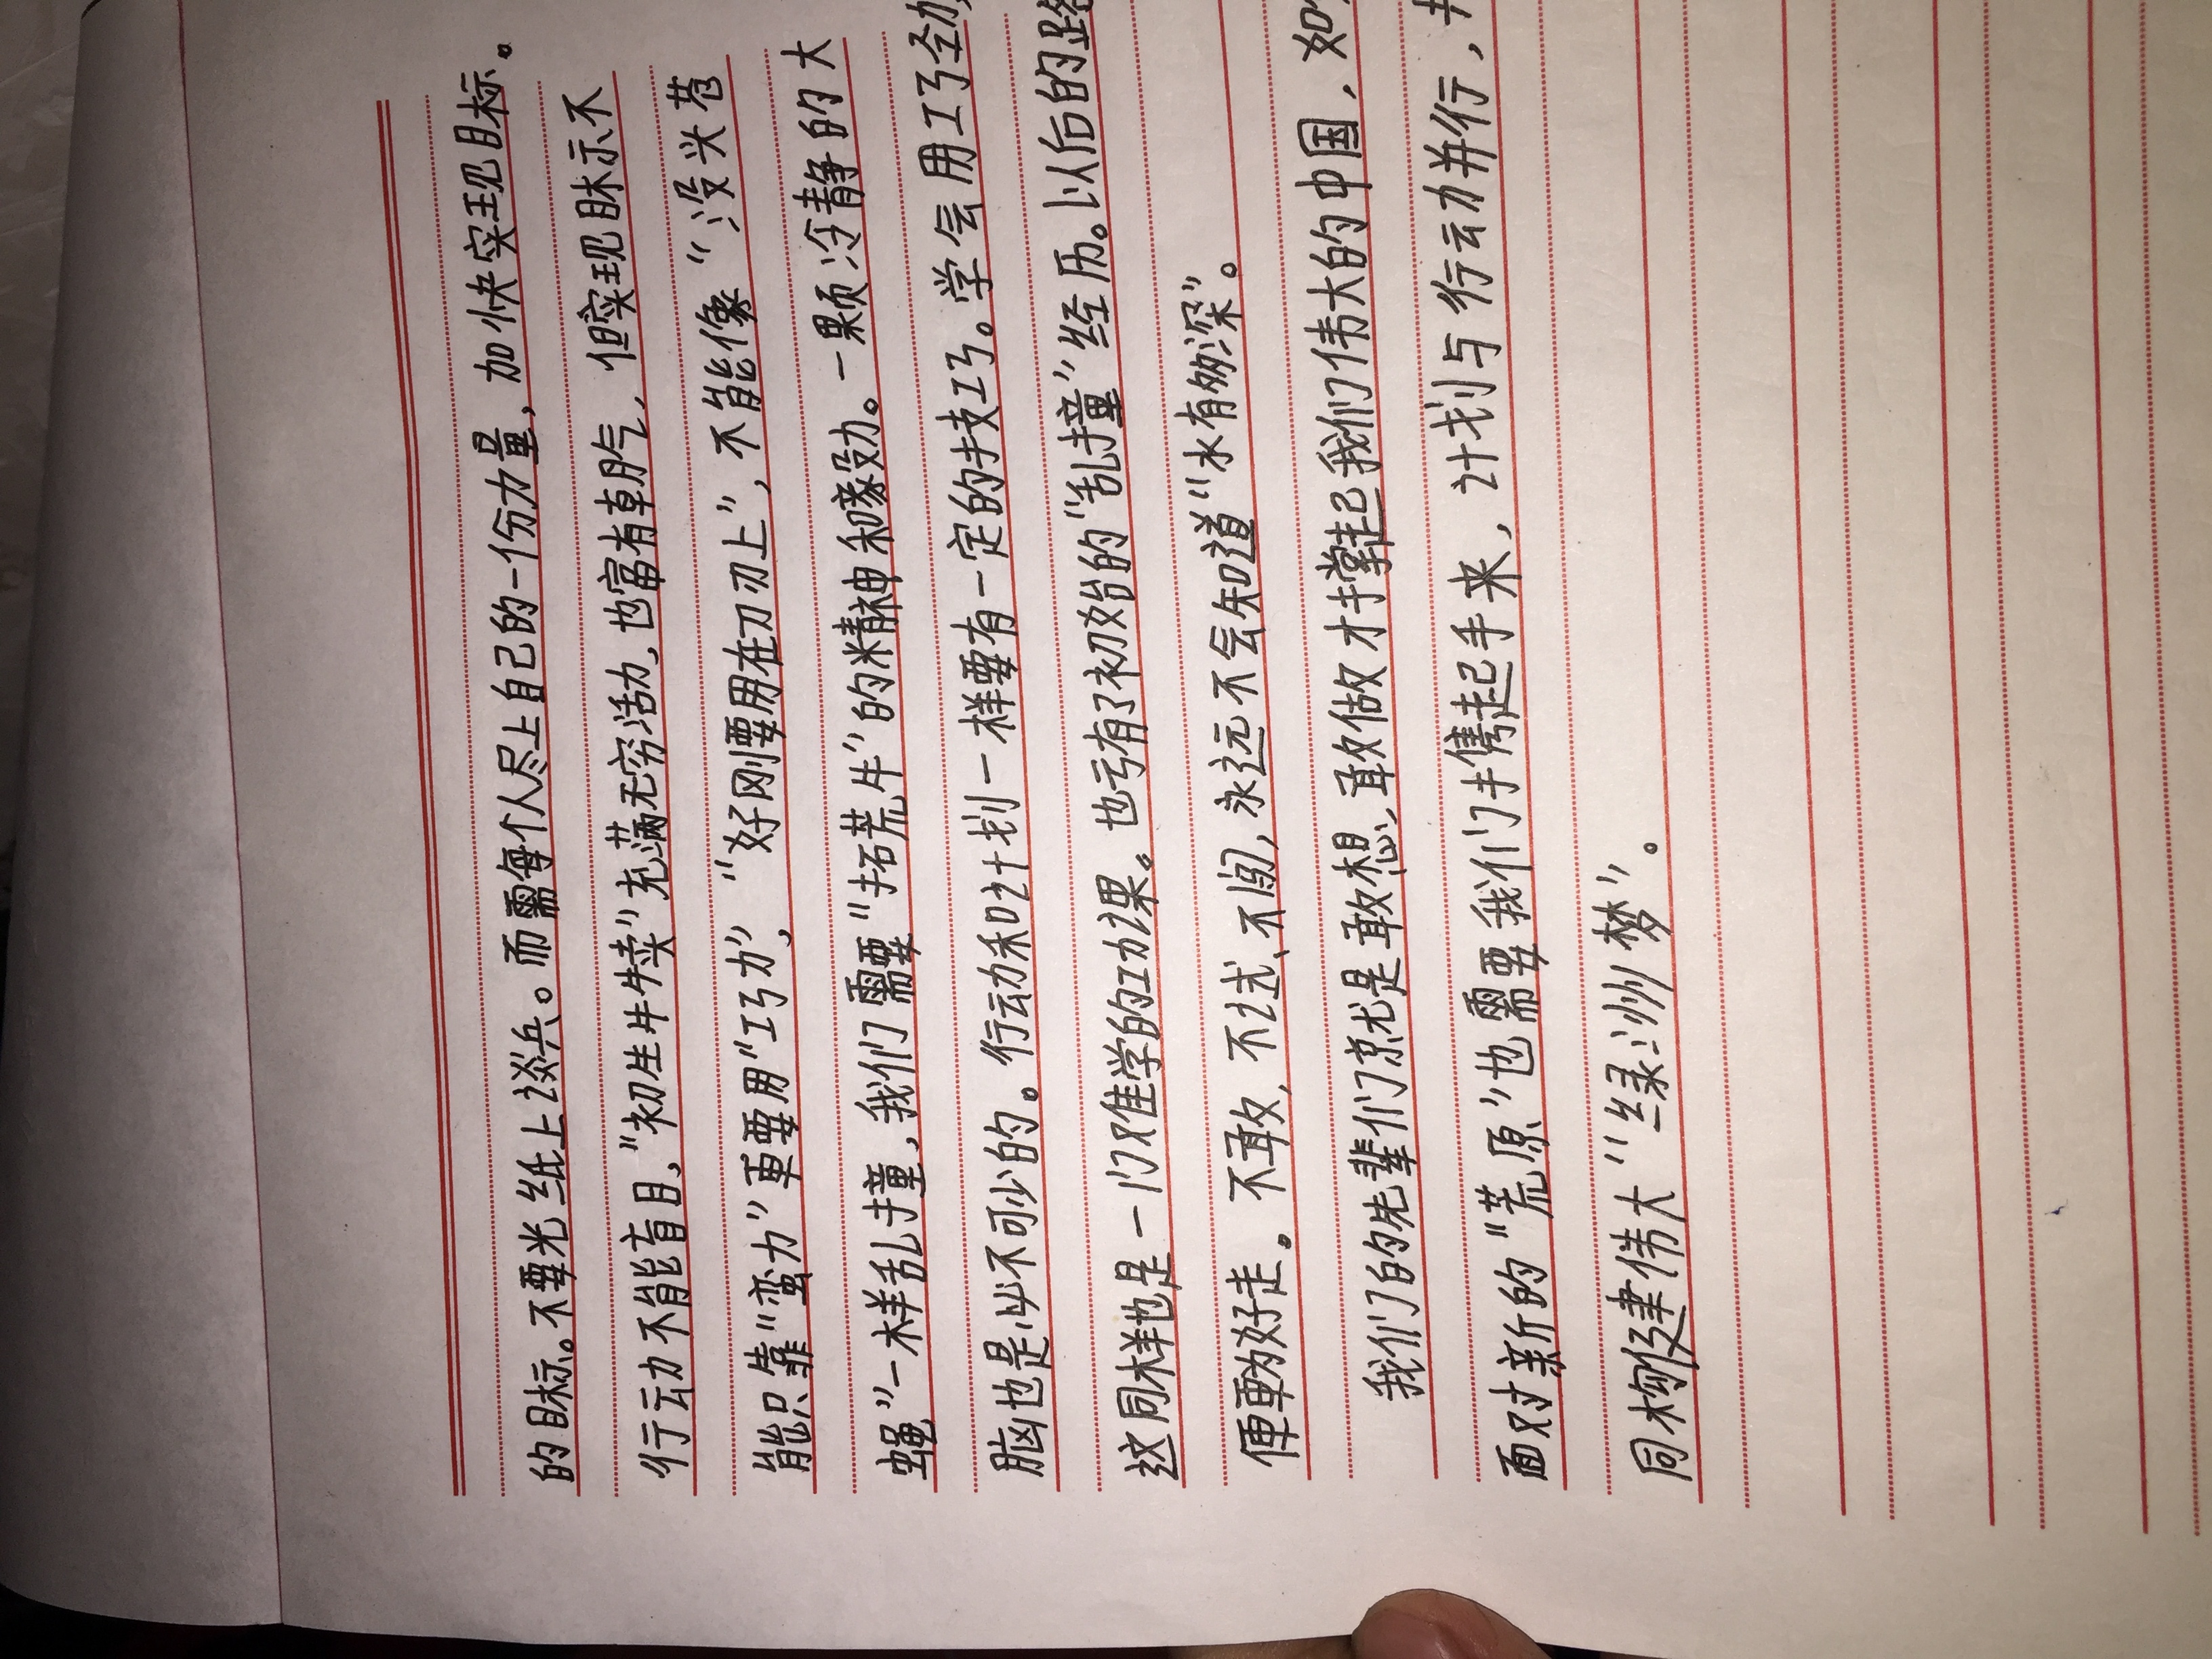 的目标。不要光纸上谈兵。而需每个人尽上自己的一份力量，加快实现目标。
行动不能盲目，“初生牛犊”充满无穷活力，也富有朝气，但实现目标不
能只靠“蛮力”更要用“巧力”，“好刚要用在刀刃上”，不能像“没头苍
蝇”一样乱撞，我们需要“拓荒牛”的精神和毅力。一颗冷静的大
脑也是必不可少的。行动和计划一样要有一定的技巧。学会用巧劲，
这同样也是一门难学的功课。也亏有了初始的“乱撞”经历。以后的路
便更为好走。不敢，不试、不闯，永远不会知道“水有多深”。
我们的先辈们就是敢想，敢做才撑起我们伟大的中国，如
面对新的“荒原”也需要我们携起手来，计划与行动并行，
同构建伟大“绿洲梦”。